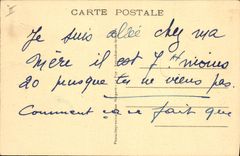 CARTE POSTALE
Je suis allé chez ma
Mère il est 7 H moins
20 puisque tu ne viens pas.
Comment ça se fait que